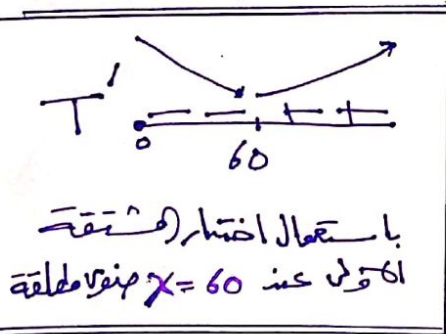 T'
− − + +
0 60
باستعمال اختبار المشتقة
الأولى عند x = 60 صغرى مطلقة